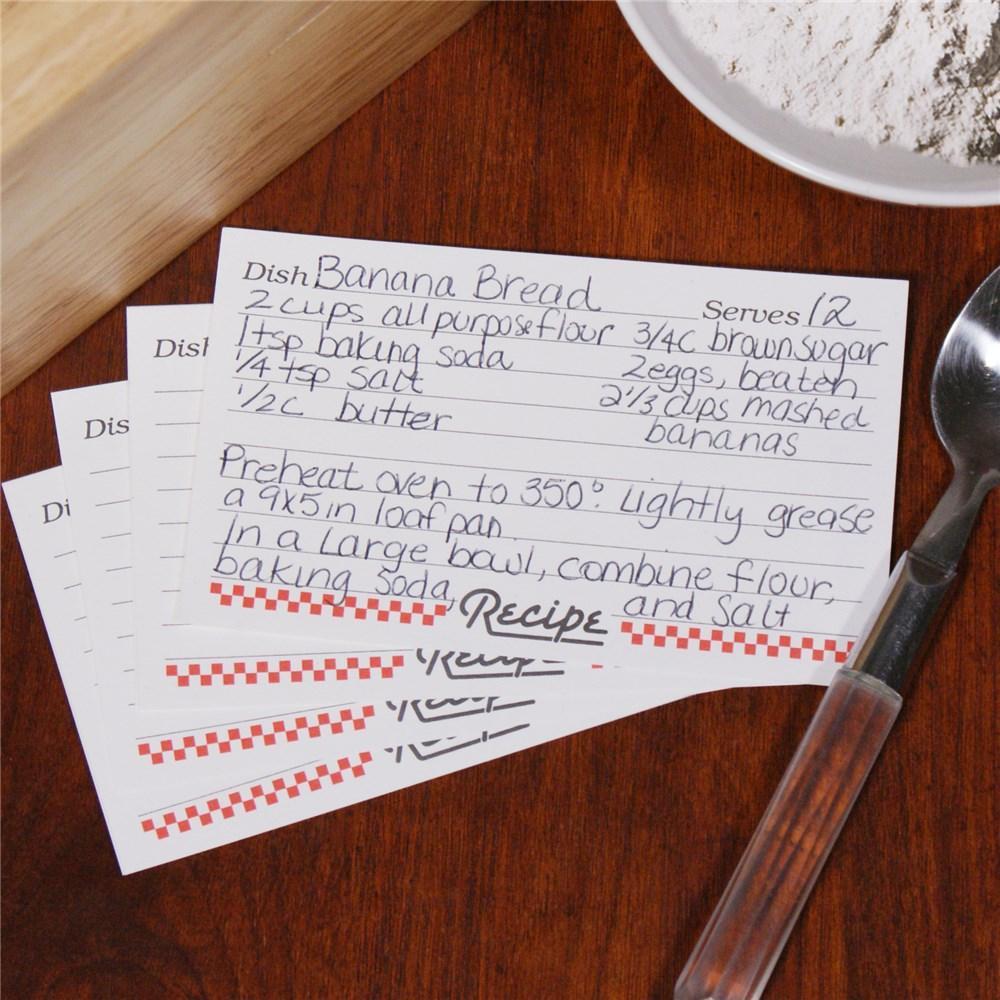 Dish Banana Bread Serves 12
2 cups all purpose flour 3/4C brown sugar
1 tsp baking soda 2 eggs, beaten
1/4 tsp salt 2 1/3 cups mashed
1/2 C butter bananas
Preheat oven to 350° Lightly grease
a 9x5 in loaf pan.
In a Large bowl, combine flour,
baking soda, and Salt
Recipe
Dish
Dis
Di